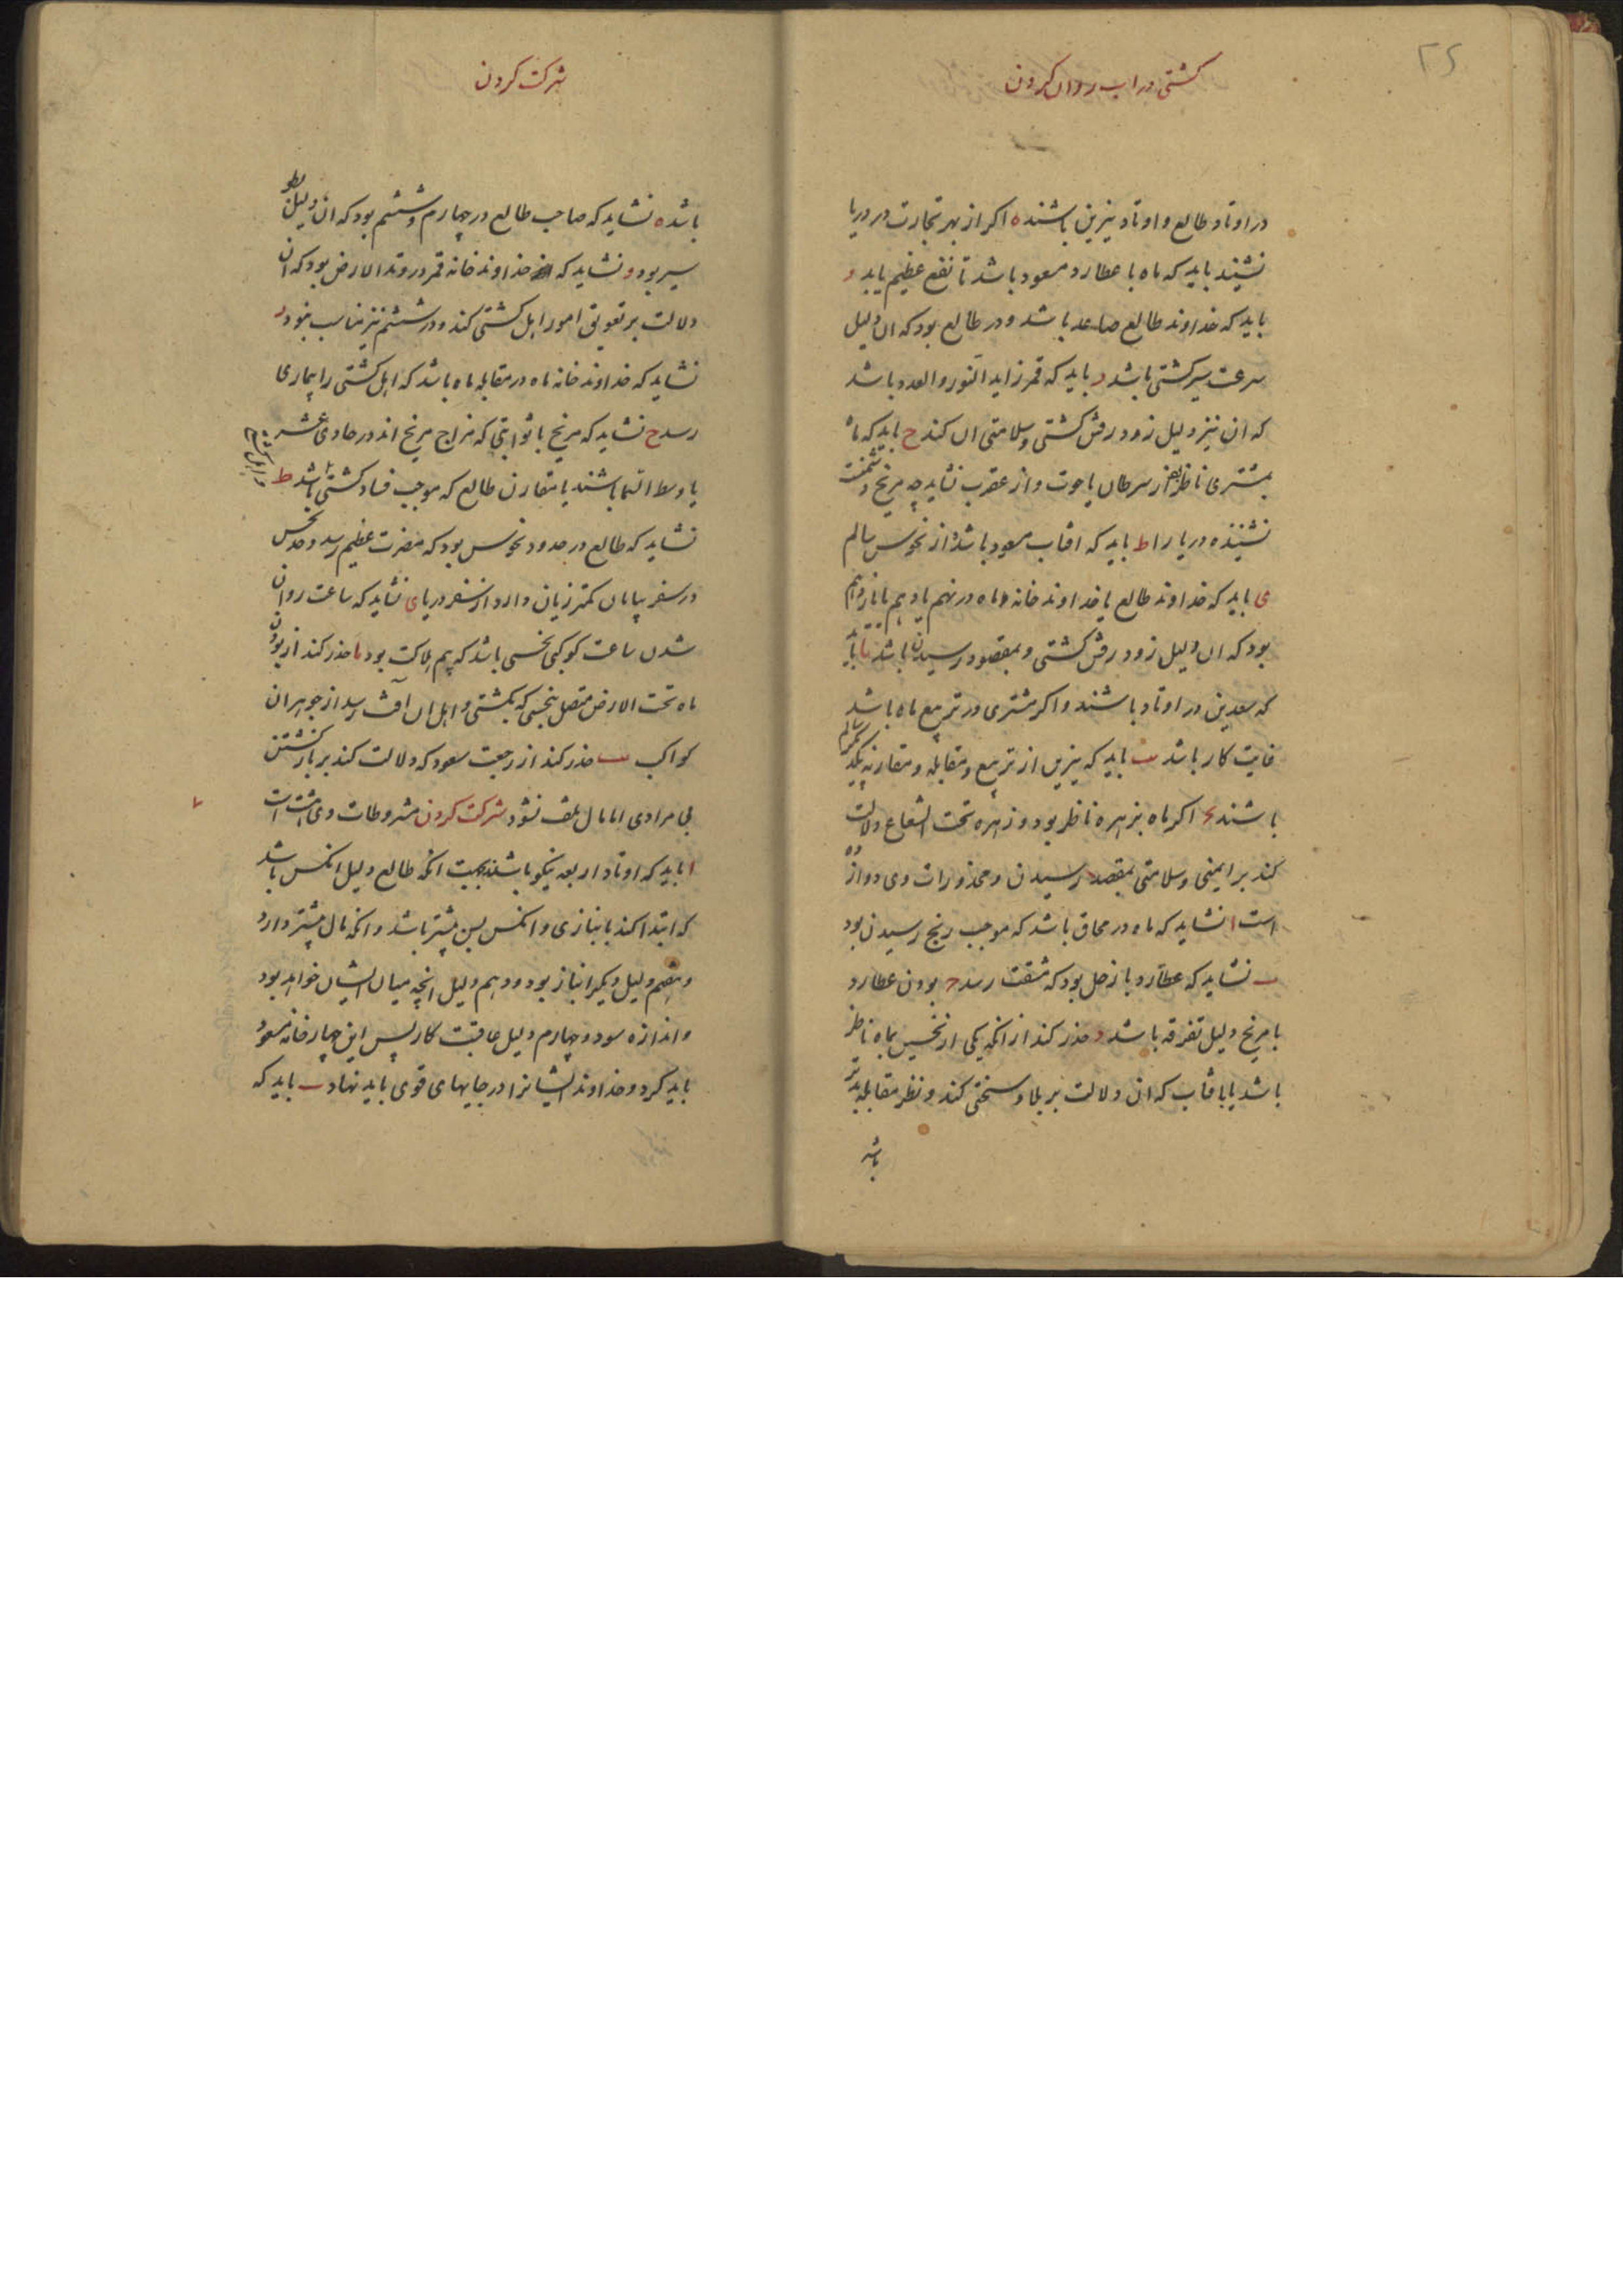 ۲۵
کشتی در اب روان کردن
در اوتاد طالع و اوتاد نیرین باشند ه اکر از بهر تجارت در دریا
نشیند باید که ماه با عطارد مسعود باشد تا نفع عظیم یابد و
باید که خداوند طالع صاعد باشد و در طالع بود که ان دلیل
سرعت سیر کشتی باشد ر باید که قمر زاید النور و العدد باشد
که ان نیز دلیل زود رفتن کشتی و سلامتی ان کند ح باید که ماه
بمشتری ناظر بود از سرطان یا حوت و از عقرب نشاید چه مریخ
نشیننده دریا را ط باید که افتاب مسعود باشد و از نحوس سالم
ی باید که خداوند طالع یا خداوند خانه ماه در نهم یا دهم یا یازدهم
بود که ان دلیل زود رفتن کشتی و بمقصود رسیدن باشد یا باید
که سعدین در اوتاد باشند و اکر مشتری در تربیع ماه باشد
غایت کار باشد یب باید که نیرین از تربیع و مقابله و مقارنه یکدیکر سالم
باشند یج اکر ماه بزهره ناظر بود و زهره تحت الشعاع دلالت
کند بر ایمنی و سلامتی بمقصد رسیدن و محذورات وی دوازده
است ا نشاید که ماه در محاق باشد که موجب رنج رسیدن بود
ب نشاید که عطارد با زحل بود که مشقت رسد ج بودن عطارد
با مریخ دلیل تفرقه باشد د حذر کند از انکه یکی از نحسین بماه ناظر
باشد یا بافتاب که ان دلالت بر بلا و سختی کند و نظر مقابله بدتر
باشد
شرکت کردن
باشد ه نشاید که صاحب طالع در چهارم و ششم بود که ان دلیل بطو
سیر بود و نشاید که خداوند خانه قمر در وتد الارض بود که ان
دلالت بر تعویق امور اهل کشتی کند و در ششم نیز مناسب نبود ر
نشاید که خداوند خانه ماه در مقابله ماه باشد که اهل کشتی را بیماری
رسد ح نشاید که مریخ با ثوابتی که مزاج مریخ اند در حادی عشر
یا وسط السما باشند یا مقارن طالع که موجب فساد کشتی باشد ط
نشاید که طالع در حدود نحوس بود که مضرت عظیم رسد و حد نحس
در سفر بیابان کمتر زیان دارد از سفر دریا ی نشاید که ساعت روان
شدن ساعت کوکبی نحسی باشد که بیم هلاکت بود یا حذر کند از بودن
ماه تحت الارض متصل بنحسی که بکشتی و اهل ان آفت رسد از جوهر ان
کواکب یب حذر کند از رجعت سعود که دلالت کند بر بازکشتن
بی مرادی اما مال تلف نشود شرکت کردن مشروطات وی هشت است
ا باید که اوتاد اربعه نیکو باشند بجهت انکه طالع دلیل انکس باشد
که ابتدا کند بانبازی و انکس بسن بیشتر باشد و انکه مال بیشتر دارد
و هفتم دلیل دیکر انباز بود و دهم دلیل انچه میان ایشان خواهد بود
و اندازه سود و چهارم دلیل عاقبت کار پس این چهار خانه مسعود
باید کرد و خداوند ایشانرا در جایهای قوی باید نهاد ب باید که